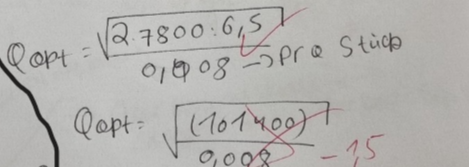 Qopt = √2·7800·6,5
0,008 → pro Stück
Qopt = √(101400)
0,008 - 1,5